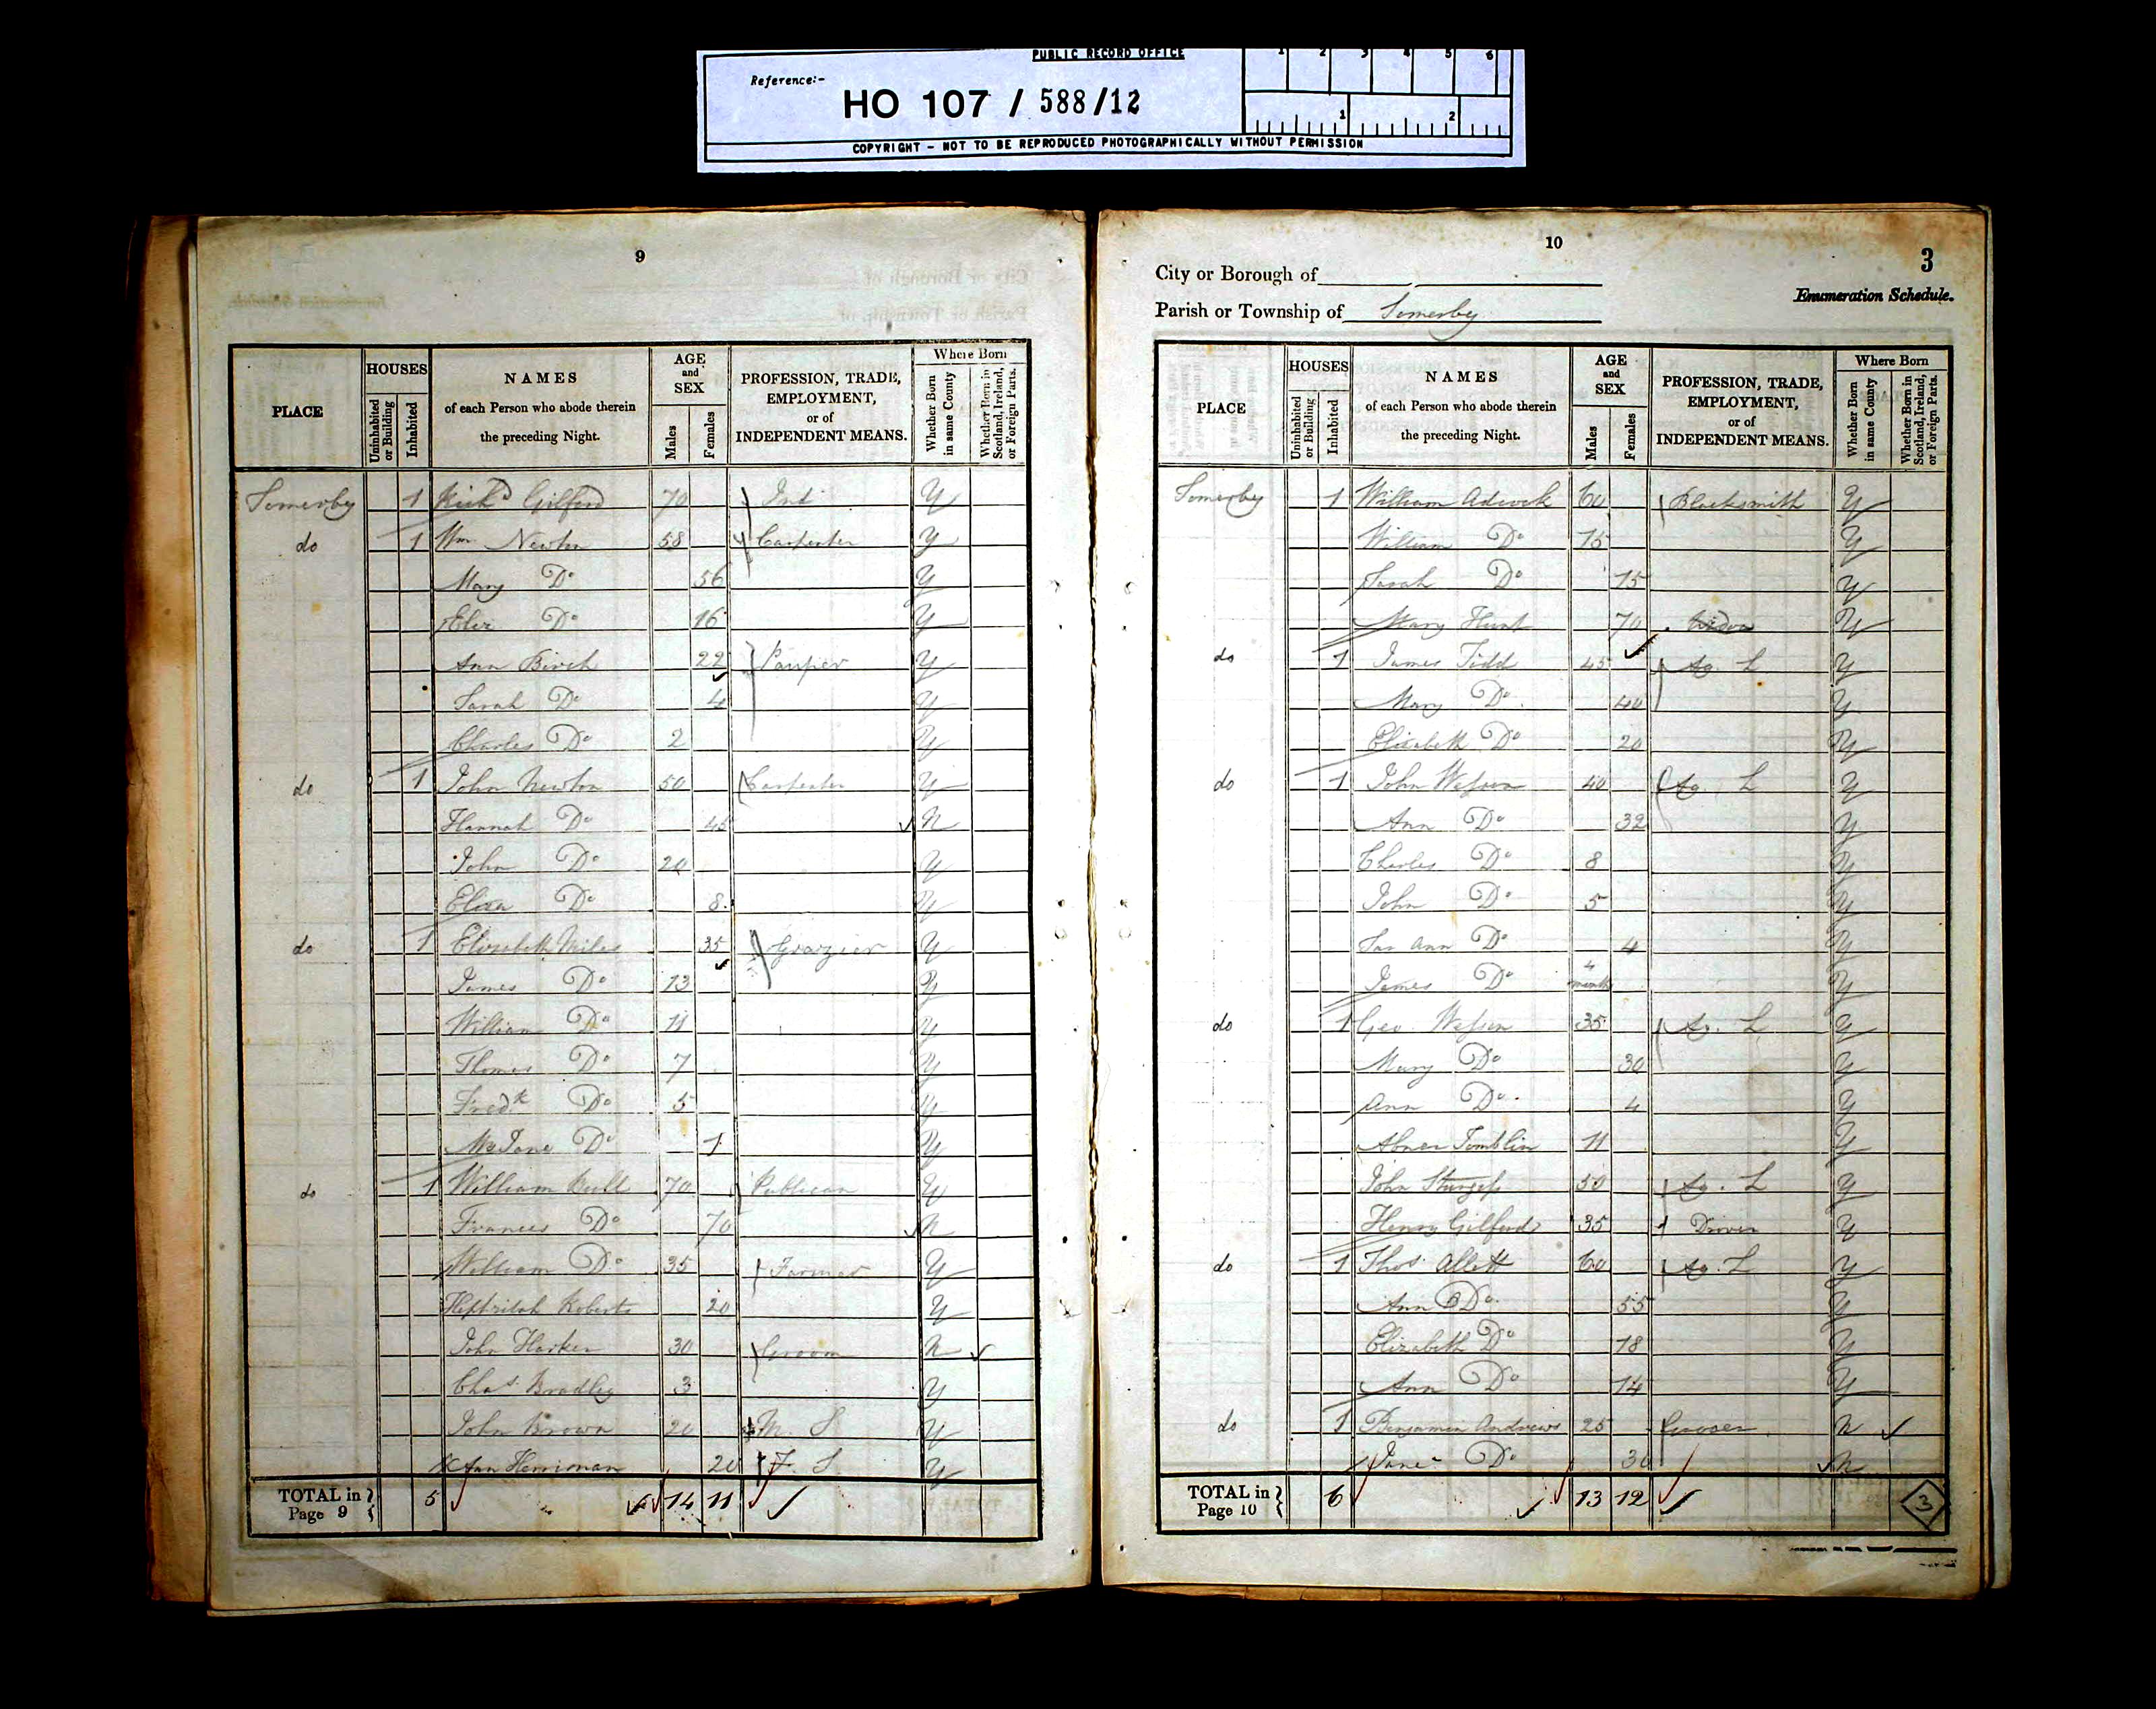 PUBLIC RECORD OFFICE
Reference:-
HO 107 / 588/12
1 2 3 4 5 6
1 2
COPYRIGHT - NOT TO BE REPRODUCED PHOTOGRAPHICALLY WITHOUT PERMISSION
9
PLACE
HOUSES
Uninhabited or Building
Inhabited
NAMES
of each Person who abode therein
the preceding Night.
AGE
and
SEX
Males
Females
PROFESSION, TRADE,
EMPLOYMENT,
or of
INDEPENDENT MEANS.
Where Born
Whether Born in same County
Whether Born in Scotland, Ireland, or Foreign Parts.
Somerby 1 Richd Gilford 70 Ind Y
do 1 Wm Newton 58 Carpenter Y
Mary Do 56 Y
Eliz Do 16 Y
Ann Birch 22 Pauper Y
Sarah Do 4 Y
Charles Do 2 Y
do 1 John Newton 50 Carpenter Y
Hannah Do 45 N
John Do 20 Y
Eliza Do 8 Y
do 1 Elizabeth Miles 35 Grazier Y
James Do 13 Y
William Do 11 Y
Thomas Do 7 Y
Fredk Do 5 Y
Mа Jane Do 1 Y
do 1 William Bull 70 Publican Y
Frances Do 70 N
William Do 35 Farmer Y
Roberts 20 Y
John Harker 30 Groom N
Chas Bradley 3 Y
John Brown 20 M. S Y
Ann Herriman 20 F. S Y
TOTAL in Page 9 5 14 11
10
3
City or Borough of
Enumeration Schedule.
Parish or Township of Somerby
PLACE
HOUSES
Uninhabited or Building
Inhabited
NAMES
of each Person who abode therein
the preceding Night.
AGE
and
SEX
Males
Females
PROFESSION, TRADE,
EMPLOYMENT,
or of
INDEPENDENT MEANS.
Where Born
Whether Born in same County
Whether Born in Scotland, Ireland, or Foreign Parts.
Somerby 1 William Adcock 60 Blacksmith Y
William Do 15 Y
Sarah Do 15 Y
Mary Hunt 70 Y
do 1 James Tidd 45 Ag. L Y
Mary Do 40 Y
Elizabeth Do 20 Y
do 1 John Wesson 40 Ag. L Y
Ann Do 32 Y
Charles Do 8 Y
John Do 5 Y
Sar Ann Do 4 Y
James Do 4 months Y
do 1 Geo Wesson 35 Ag. L Y
Mary Do 30 Y
Ann Do 4 Y
Abner Tomblin 11 Y
John Sturgess 50 Ag. L Y
Henry Gilford 35 Drover Y
do 1 Thos Allett 60 Ag. L Y
Ann Do 55 Y
Elizabeth Do 18 Y
Ann Do 14 Y
do 1 Benjamin Andrews 25 Grocer N
Jane Do 30 N
TOTAL in Page 10 6 13 12
3